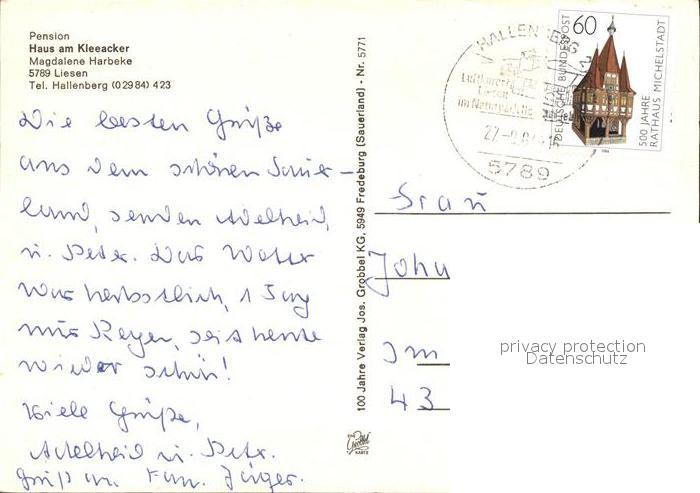 Pension
Haus am Kleeacker
Magdalene Harbeke
5789 Liesen
Tel. Hallenberg (0 29 84) 4 23
Die besten Grüße
aus dem schönen Sauer-
land, senden Adelheid,
u. Peter. Das Wetter
war herbstlich, 1 Tag
nur Regen, seit heute
wieder schön!
Viele Grüße,
Adelheid u. Peter.
Gruß an Fam. Jäger.
100 Jahre Verlag Jos. Grobbel KG, 5949 Fredeburg (Sauerland) - Nr. 5771
Grobbel
KARTE
HALLENBERG
Luftkurort
Liesen
im Naturpark
5789
60
DEUTSCHE BUNDESPOST
500 JAHRE
RATHAUS MICHELSTADT
1984
Frau
John
Im
43
privacy protection
Datenschutz